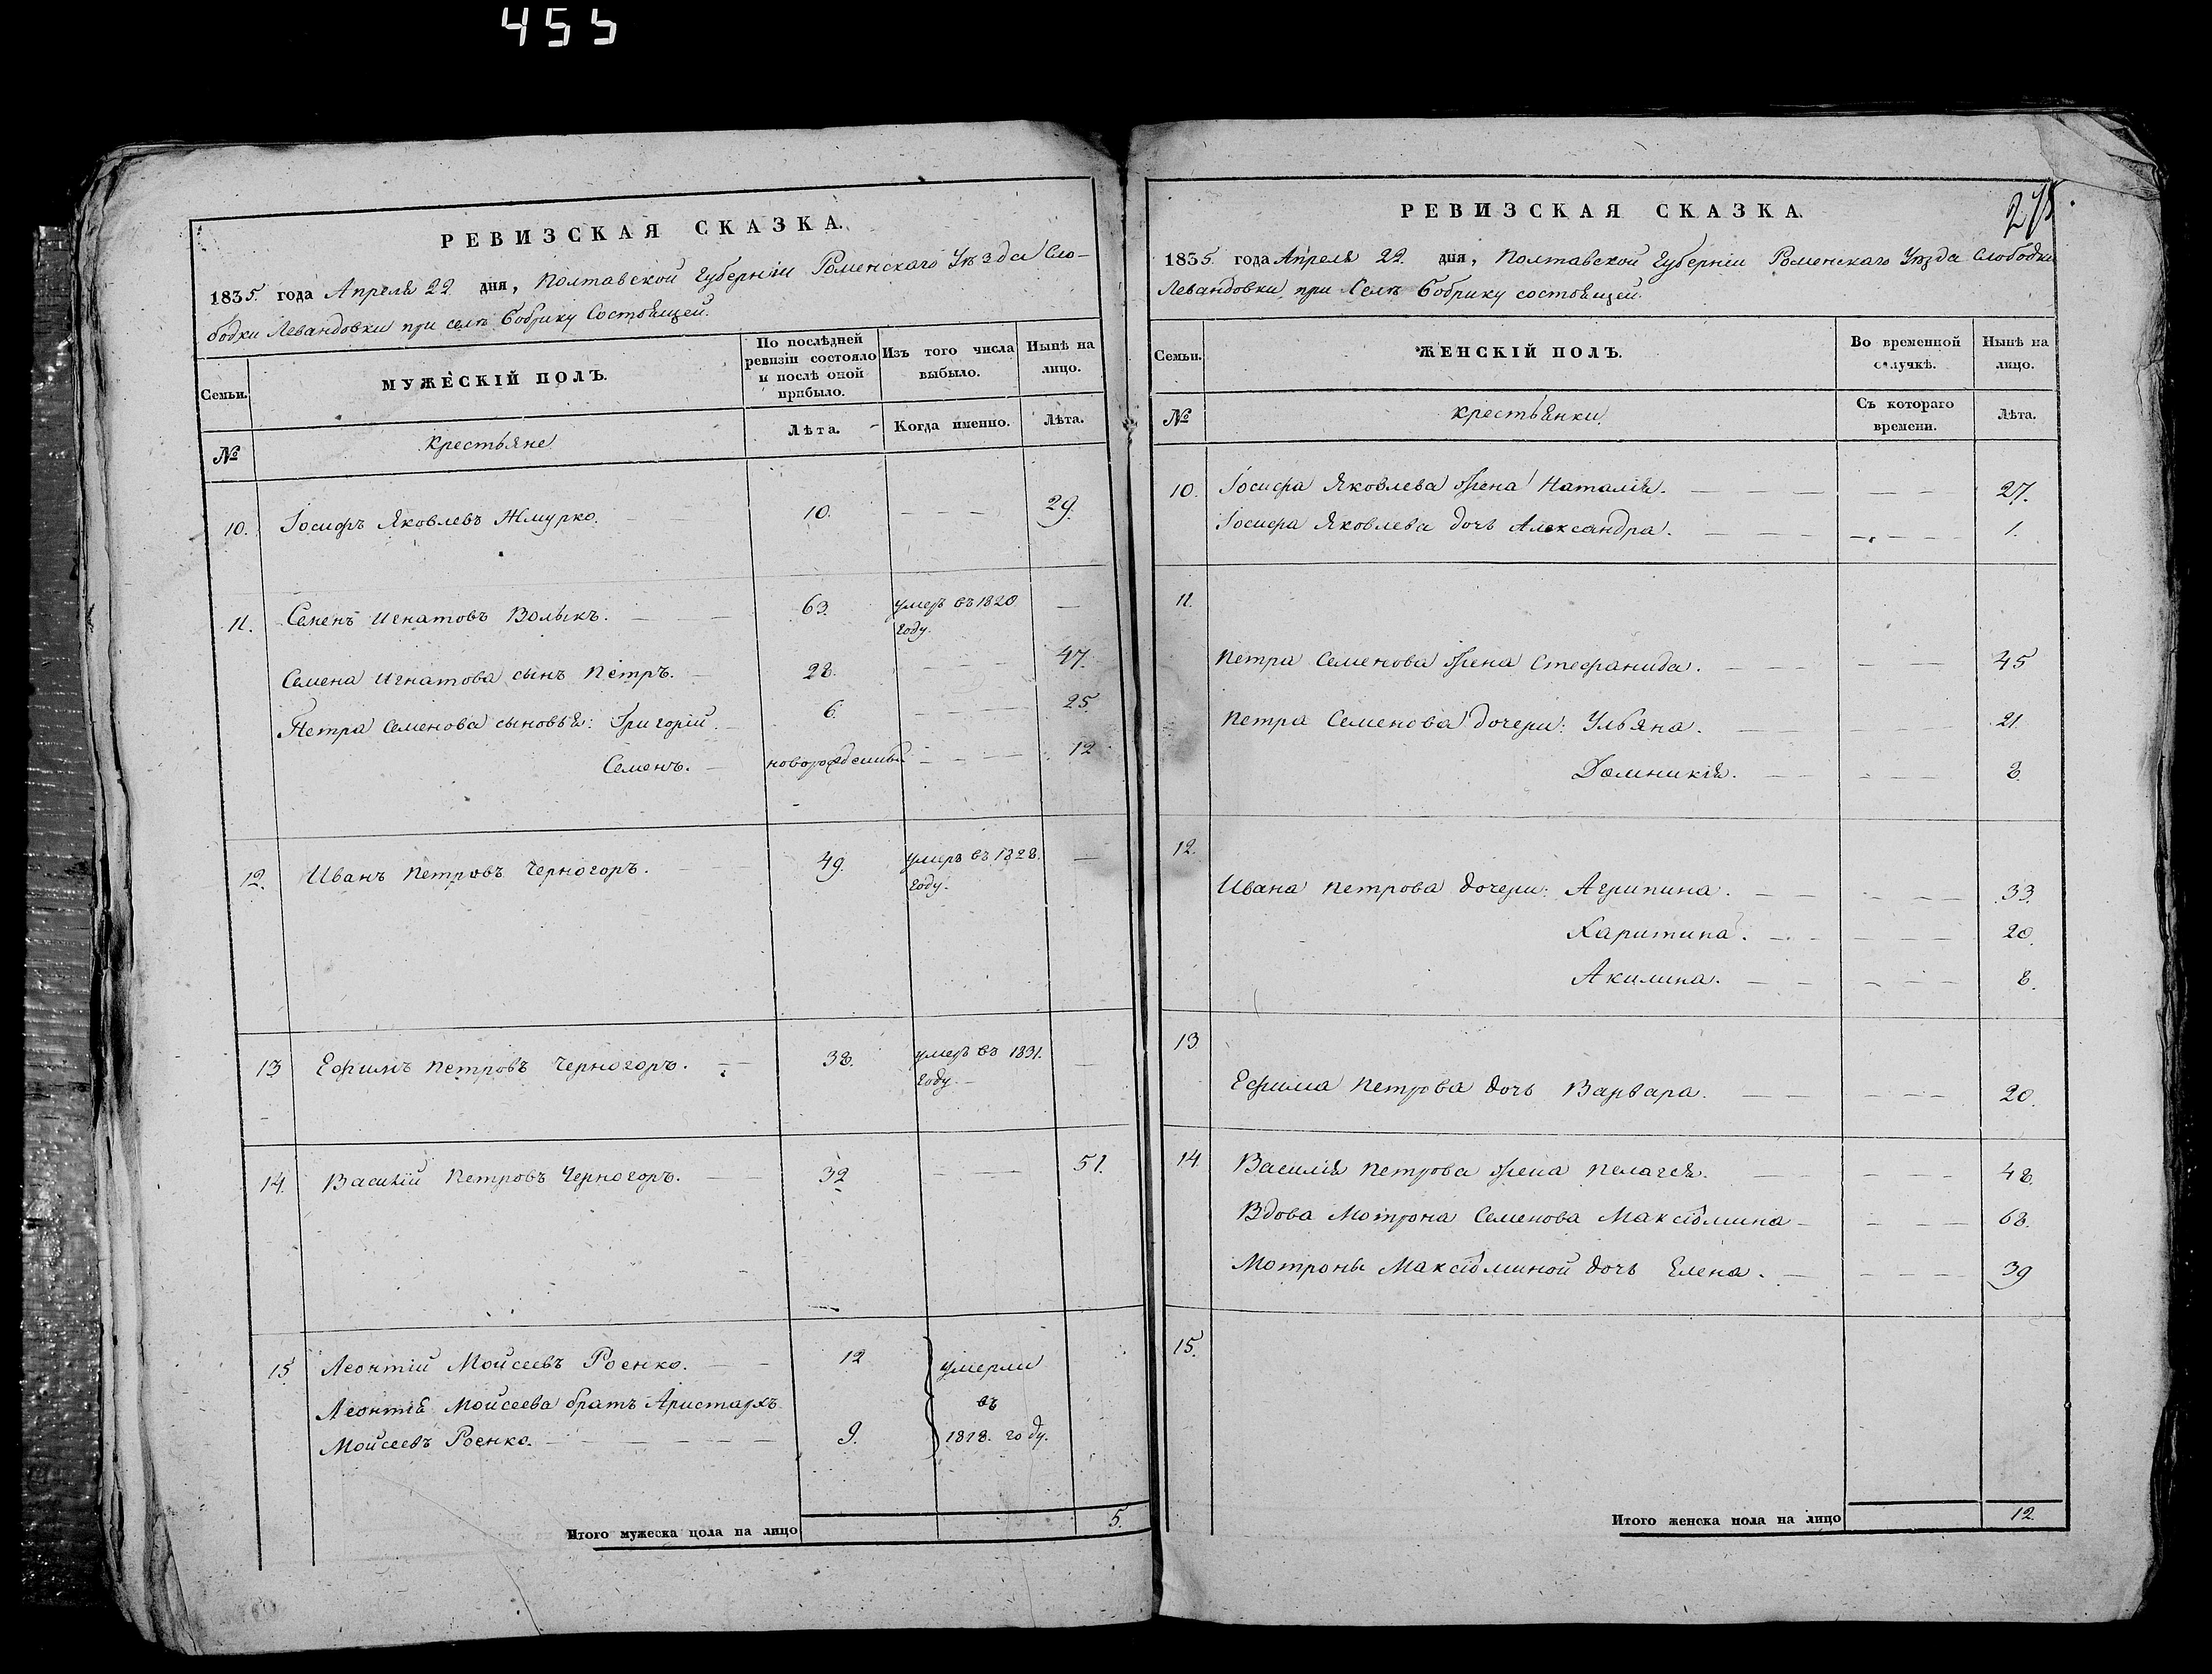 455
РЕВИЗСКАЯ СКАЗКА.
1835. года Апреля 22. дня, Полтавской Губерніи Роменскаго Уѣзда Сло-
бодки Левандовки при селѣ Бобрику Состоящей.
Семьи.
МУЖЕСКІЙ ПОЛЪ.
По послѣдней ревизіи состояло и послѣ оной прибыло.
Изъ того числа выбыло.
Нынѣ на лицо.
№
Крестьяне
Лѣта.
Когда именно.
Лѣта.
10. Іосифъ Яковлевъ Жмурко. 10. 29.
11. Семенъ Игнатовъ Волыкъ. 63. умеръ въ 1820
году.
Семена Игнатова сынъ Петръ. 28. 47.
Петра Семенова сыновья: Григорій. 6. 25.
Семенъ. новорожденный 12
12. Иванъ Петровъ Черногоръ. 49. умеръ въ 1828.
году.
13 Ефимъ Петровъ Черногоръ. 38. умеръ въ 1831.
году.
14. Василій Петровъ Черногоръ. 32 51.
15 Леонтій Мойсеевъ Роенко. 12 умерли
Леонтія Мойсеева братъ Аристархъ въ
Мойсеевъ Роенко. 9. 1828. году.
Итого мужеска пола на лицо 5.
РЕВИЗСКАЯ СКАЗКА.
1835. года Апреля 22. дня, Полтавской Губерніи Роменскаго Уѣзда Слободки
Левандовки, при Селѣ Бобрику состоящей.
Семьи.
ЖЕНСКІЙ ПОЛЪ.
Во временной отлучкѣ.
Нынѣ на лицо.
№
Крестьянки.
Съ котораго времени.
Лѣта.
10. Іосифа Яковлева жена Наталія. 27.
Іосифа Яковлева дочь Александра. 1.
11.
Петра Семенова жена Стефанида. 45
Петра Семенова дочери: Ульяна. 21.
Домникія. 8.
12.
Ивана Петрова дочери: Агрипина. 33.
Харитина. 20.
Акилина. 8.
13.
Ефима Петрова дочь Варвара. 20.
14. Василія Петрова жена Пелагея. 48.
Вдова Мотрона Семенова Максіомина 68.
Мотроны Максіоминой дочь Елена. 39
15.
Итого женска пола на лицо 12.